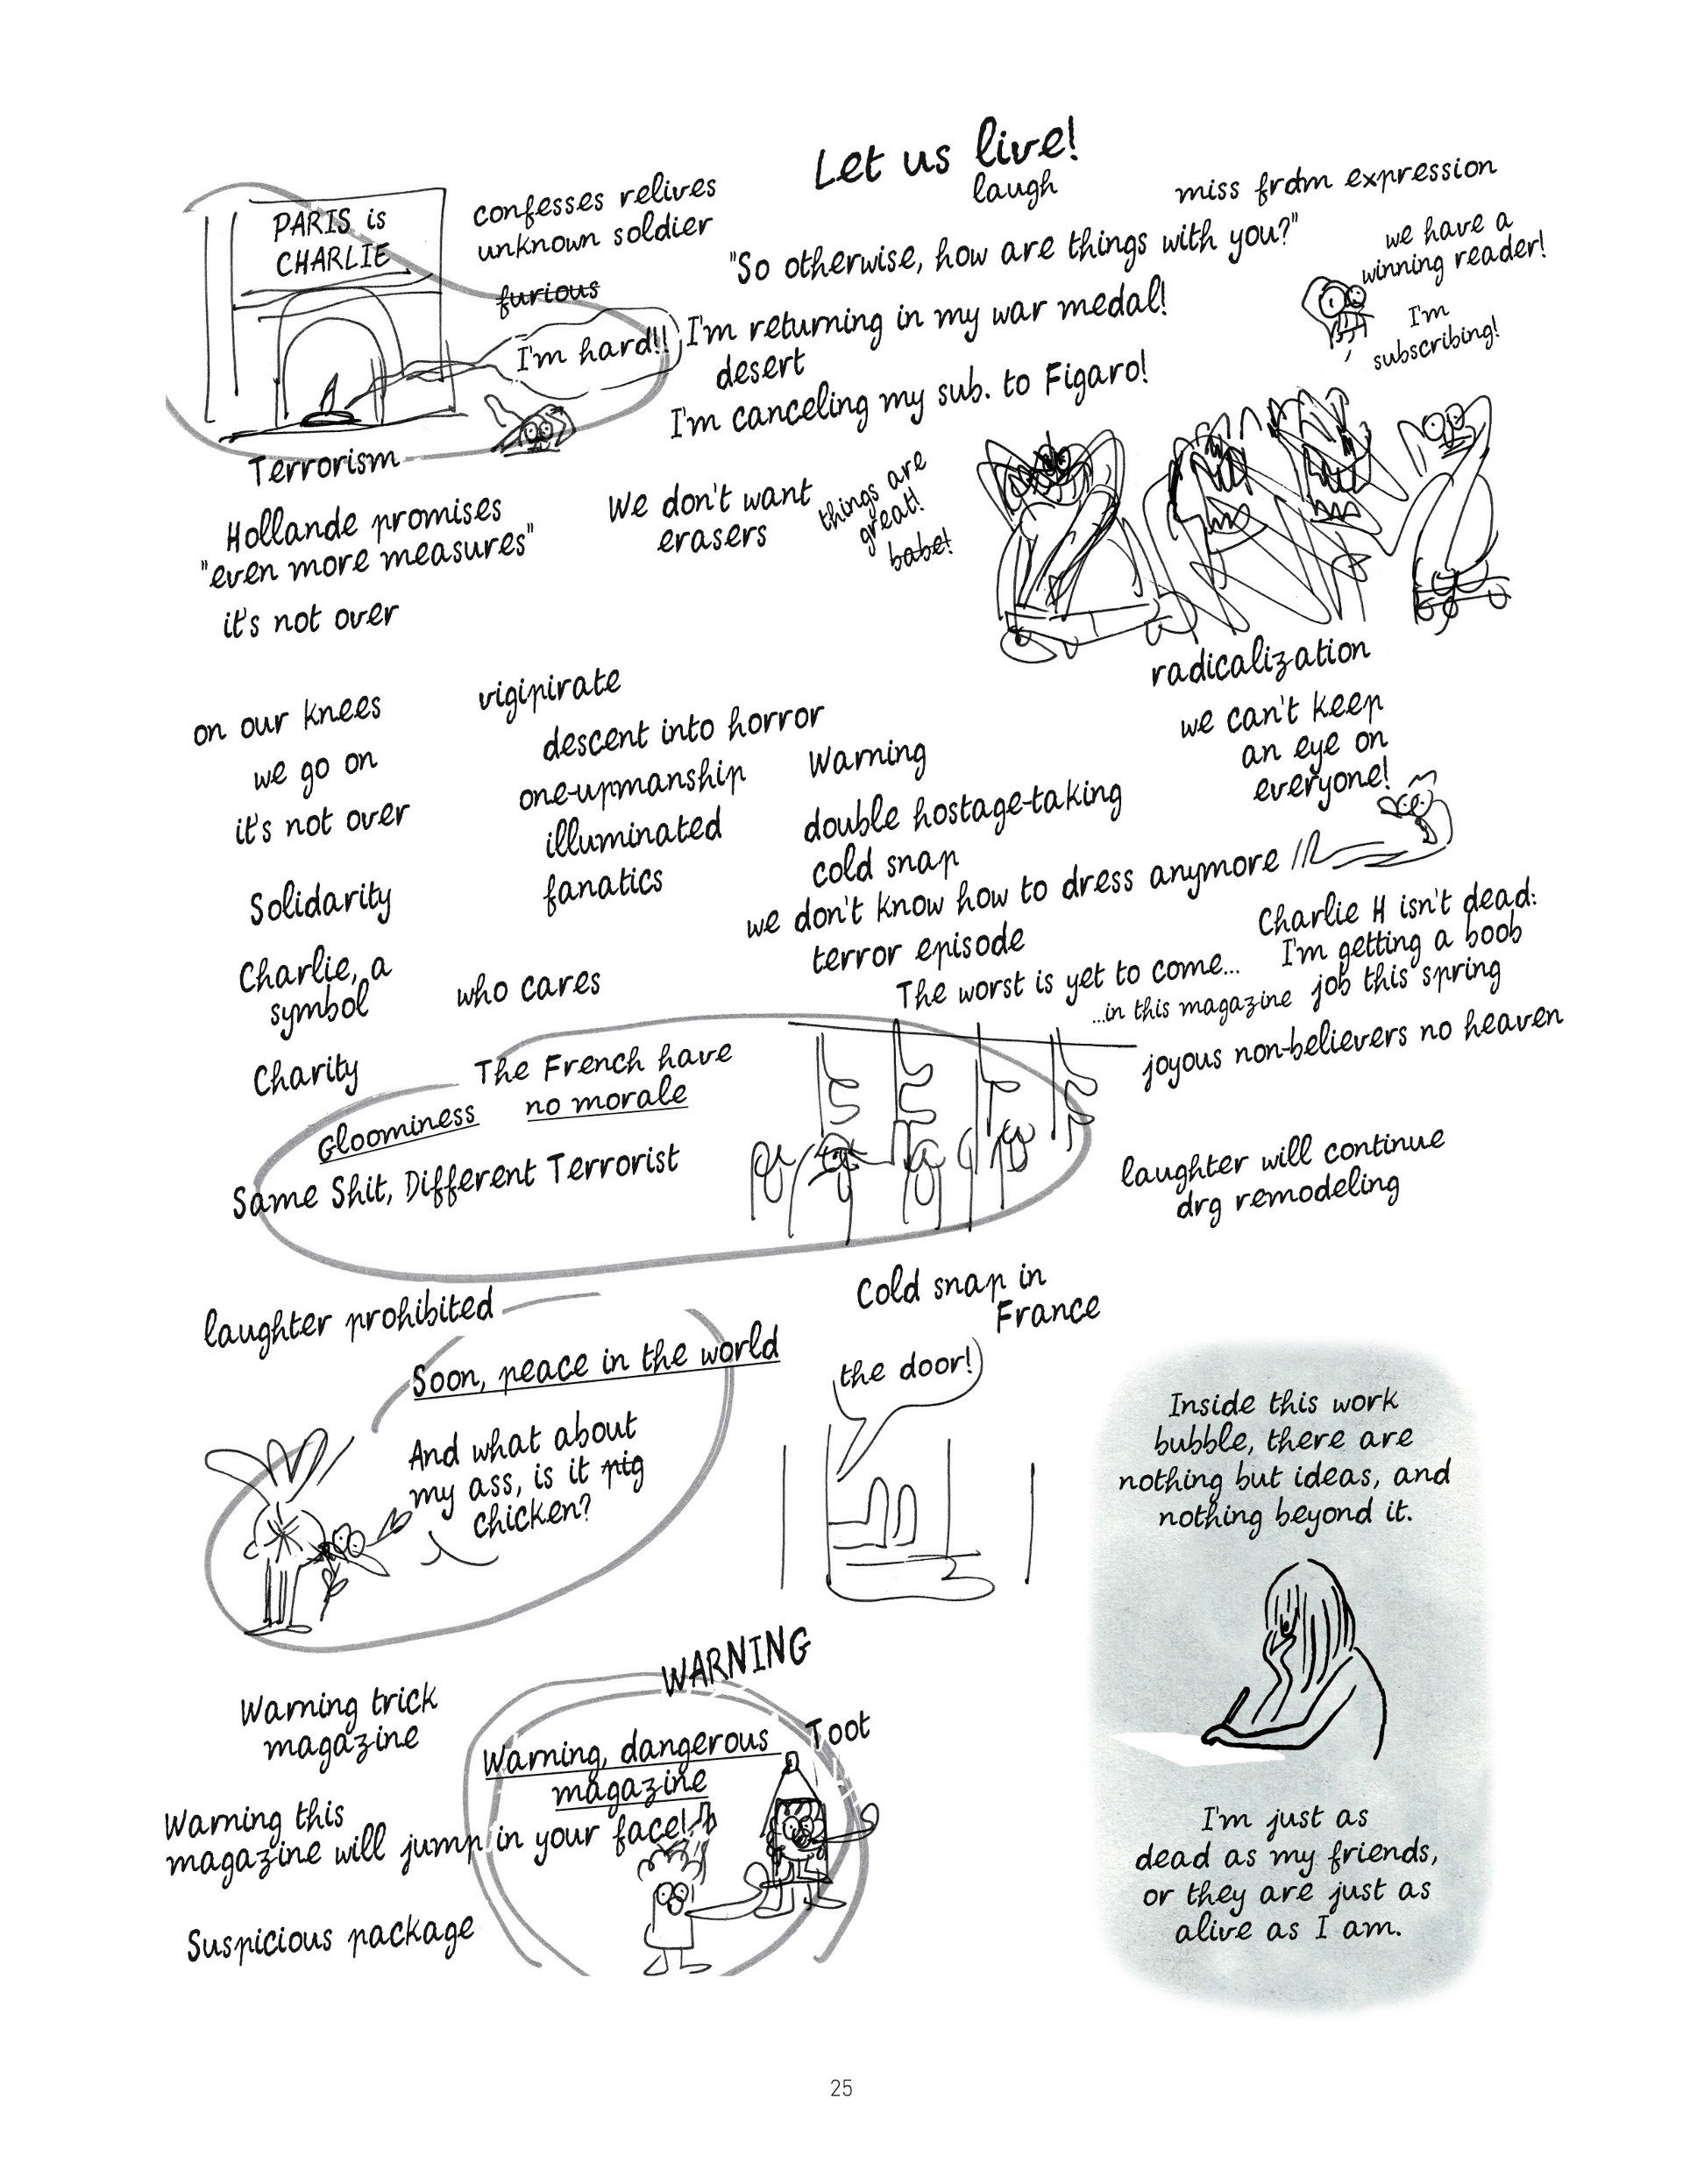 Let us live!
laugh
PARIS is
CHARLIE
confesses relives
unknown soldier
furious
I'm hard!!
miss frdm expression
"So otherwise, how are things with you?"
we have a
winning reader!
I'm
subscribing!
I'm returning in my war medal!
desert
I'm canceling my sub. to Figaro!
Terrorism
Hollande promises
"even more measures"
it's not over
We don't want
erasers
things are
great!
babe!
radicalization
we can't keep
an eye on
everyone!
on our knees
we go on
it's not over
vigipirate
descent into horror
one-upmanship
illuminated
fanatics
Warning
double hostage-taking
cold snap
we don't know how to dress anymore
terror episode
Solidarity
Charlie, a
symbol
who cares
Charity
The worst is yet to come...
...in this magazine
Charlie H isn't dead:
I'm getting a boob
job this spring
joyous non-believers no heaven
The French have
no morale
Gloominess
Same Shit, Different Terrorist
laughter will continue
drg remodeling
laughter prohibited
Cold snap in
France
the door!
Soon, peace in the world
And what about
my ass, is it pig
chicken?
Inside this work
bubble, there are
nothing but ideas, and
nothing beyond it.
WARNING
Warning trick
magazine
Warning, dangerous
magazine
Toot
Warning this
magazine will jump in your face!
Suspicious package
I'm just as
dead as my friends,
or they are just as
alive as I am.
25